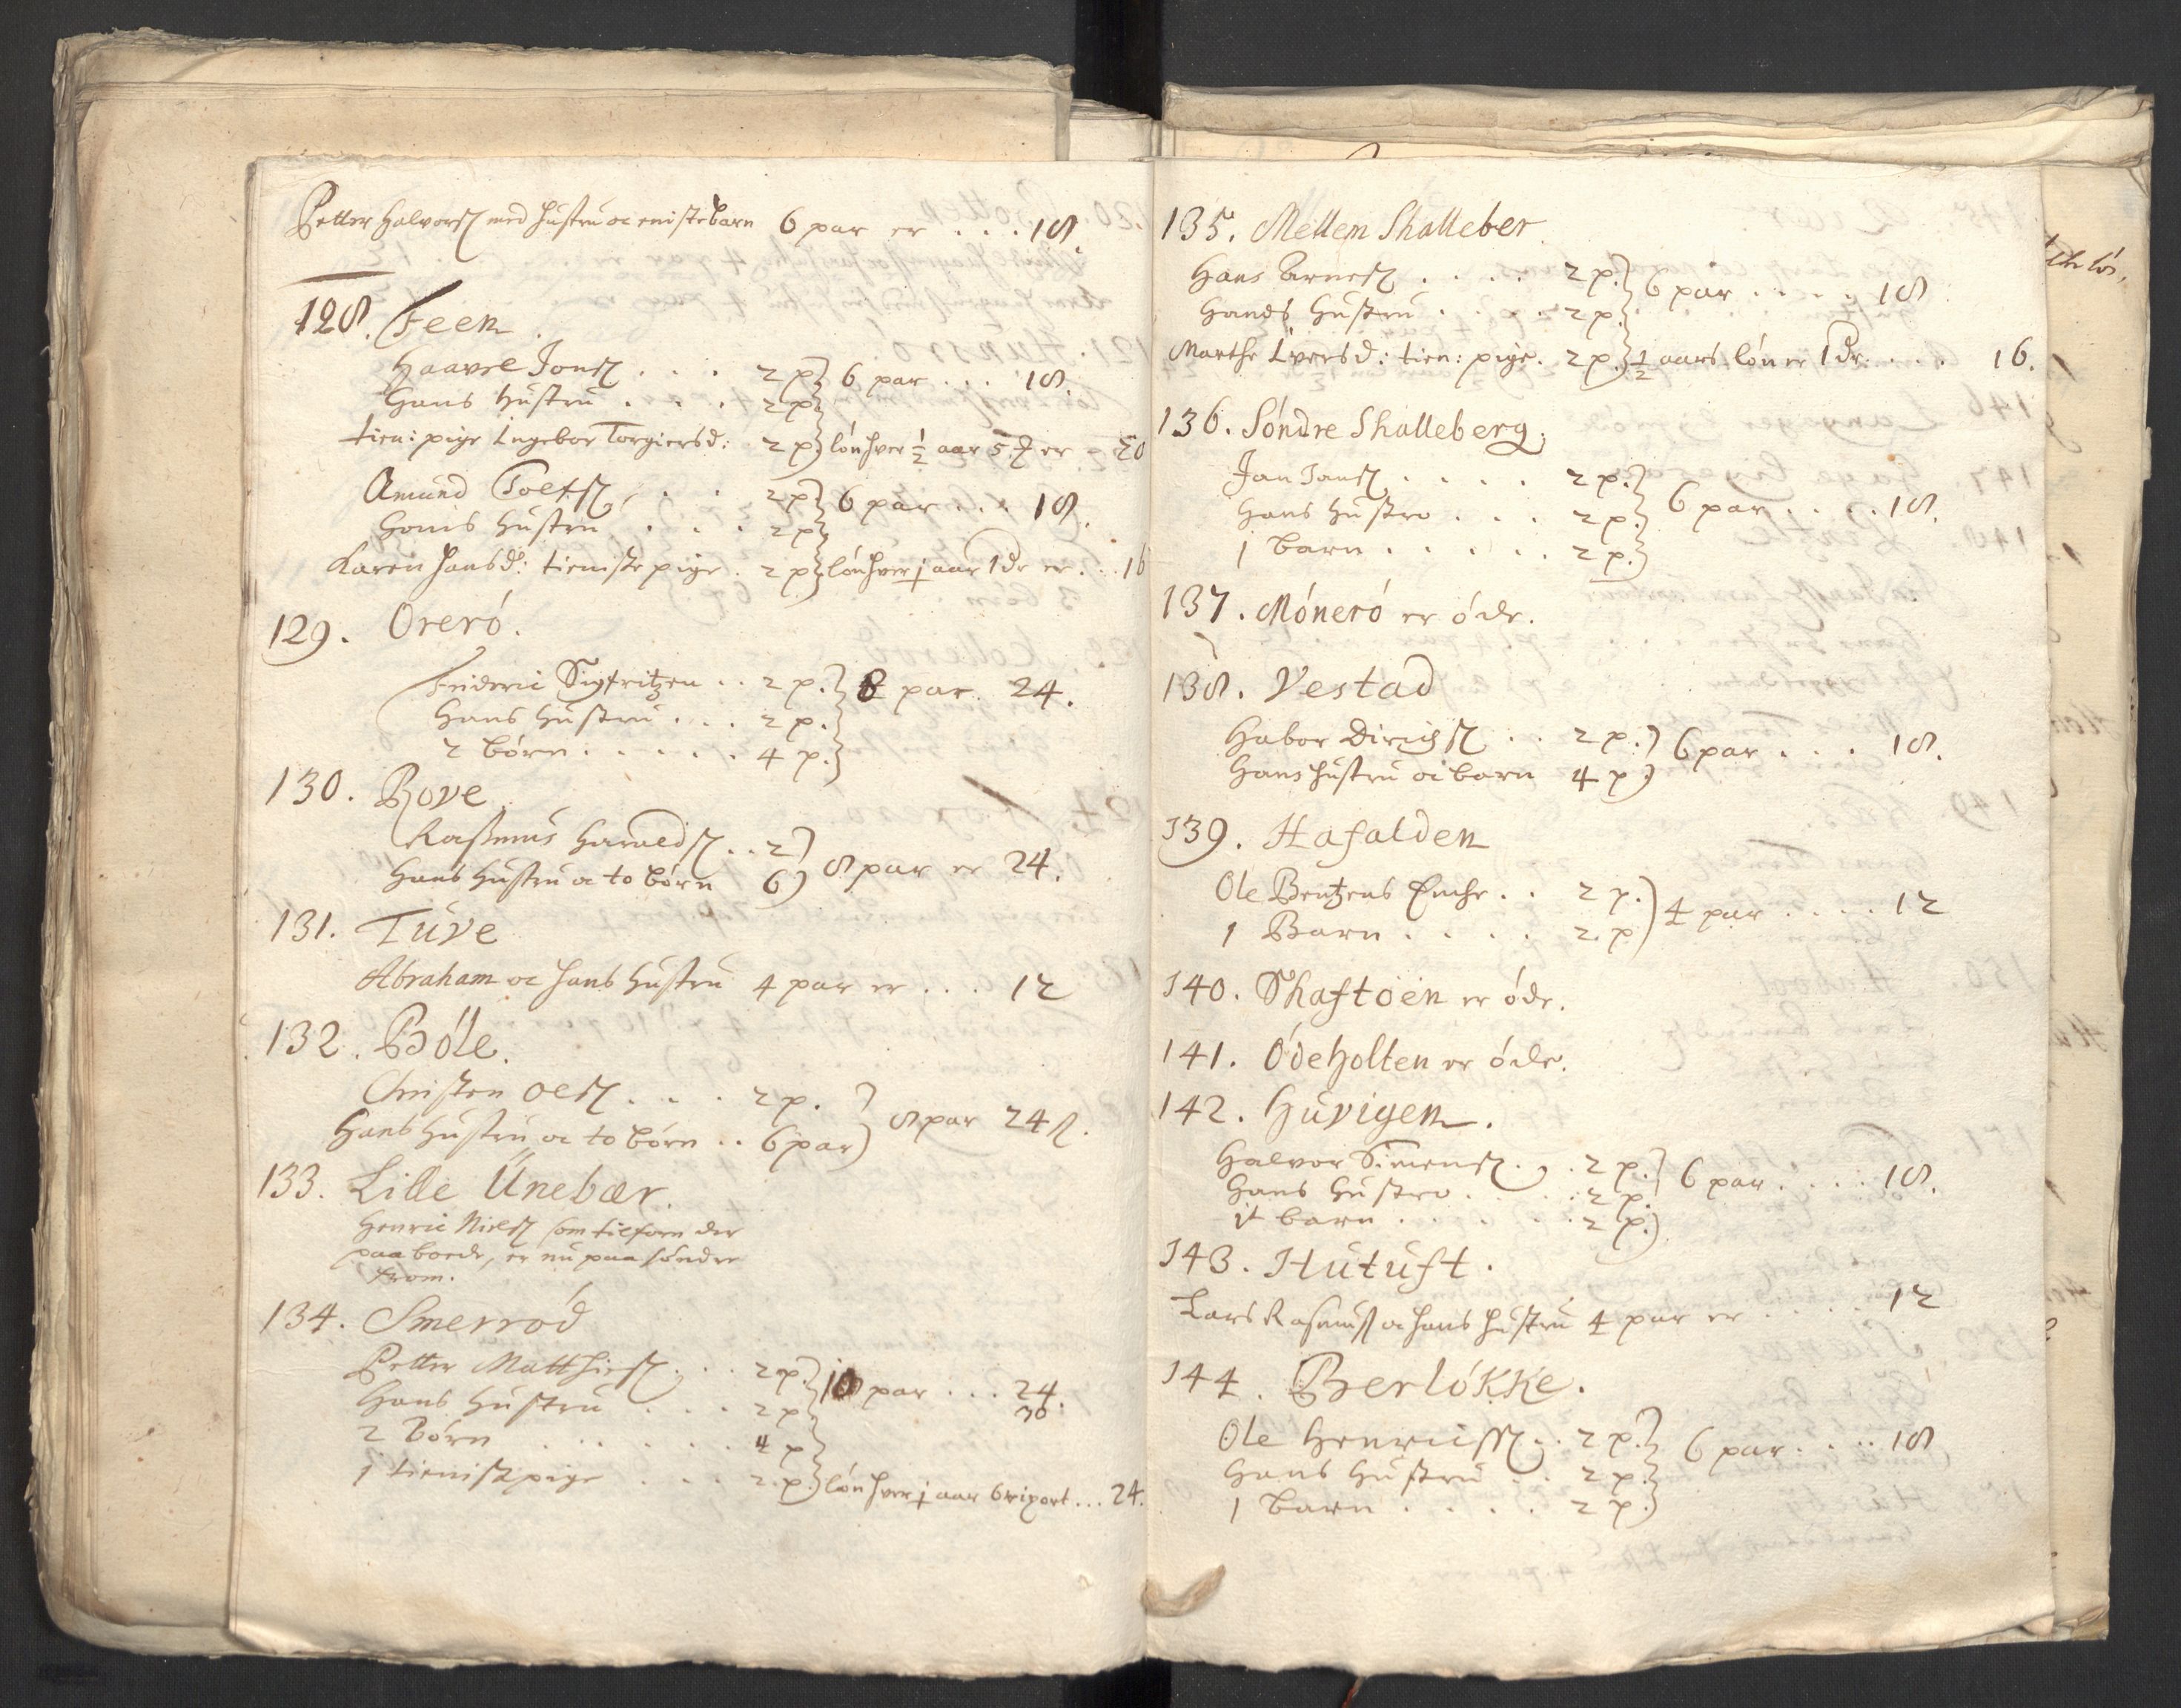 Petter Halvors: med hustru oc enistebarn 6 par er . . . 18.
128. Feen.
Haavel Jons: . . . 2 p. } 6 par . . . 18.
Hans hustru . . . 2 p.
tien: pige Ingebor Torgiersd: 2 p. } lön hver ½ aar 5 er - 20
Amund Toefs: . . 2 p. } 6 par . . . 18.
Hans hustru . . . 2 p.
Karen Hansd: tieniste pige . 2 p. } lön hver ½ aar 1 dr er . . 16
129. Oreró.
Frideric Sigfritzen . . 2 p. } 8 par . 24.
Hans hustru . . . 2 p.
2 börn . . . . . 4 p.
130. Bove
Rasmus Haraeds: . . 2 } 8 par er 24.
Hans hustru oc to börn 6
131. Tuve
Abraham oc hans hustru 4 par er . . . 12
132. Bóle.
Christen Oels: . . . 2 p. } 8 par 24 s.
Hans hustru oc to börn . . 6 par
133. Lille Unebær.
Henric Niels: som tilforn der
paa boede, er nu paa söndre
from.
134. Smerród
Petter Matthies: . . 2 p. } 10 par . . . 24.
Hans hustru . . . 2 p. 30
2 börn . . . . . . 4 p.
1 tienistpige . . . 2 p. } lön hver ½ aar 6 rixort . . . 24.
135. Mellem Skalleber
Hans Arnes: . . . . 2 p. } 6 par . . . . 18
Hands hustru . . . . 2 p.
Marthe Iversd: tien: pige. 2 p. } ½ aars lön er 1 dr. . . . 16.
136. Söndre Skalleberg.
Jan Jans: . . . . 2 p. } 6 par . . . . 18.
Hans hustro . . . 2 p.
1 barn . . . . . 2 p.
137. Móneró er óde.
138. Vestad
Habor Dirichs: . . 2 p. } 6 par . . . 18.
Hans hustru oc barn 4 p.
139. Hafalden
Ole Bentzens Encke . . 2 p. } 4 par . . . . 12
1 Barn . . . . 2 p.
140. Skaftöen er óde.
141. Ódeholten er óde.
142. Huvigen.
Halvor Simens: . . 2 p. } 6 par . . . . 18.
Hans hustro . . . . 2 p.
it barn . . . . . 2 p.
143. Hutuft.
Lars Rasmuss: oc hans hustru 4 par er . . . . 12
144. Berlókke.
Ole Henricss: . . 2 p. } 6 par . . . . 18
Hans hustru . . . 2 p.
1 barn . . . . 2 p.